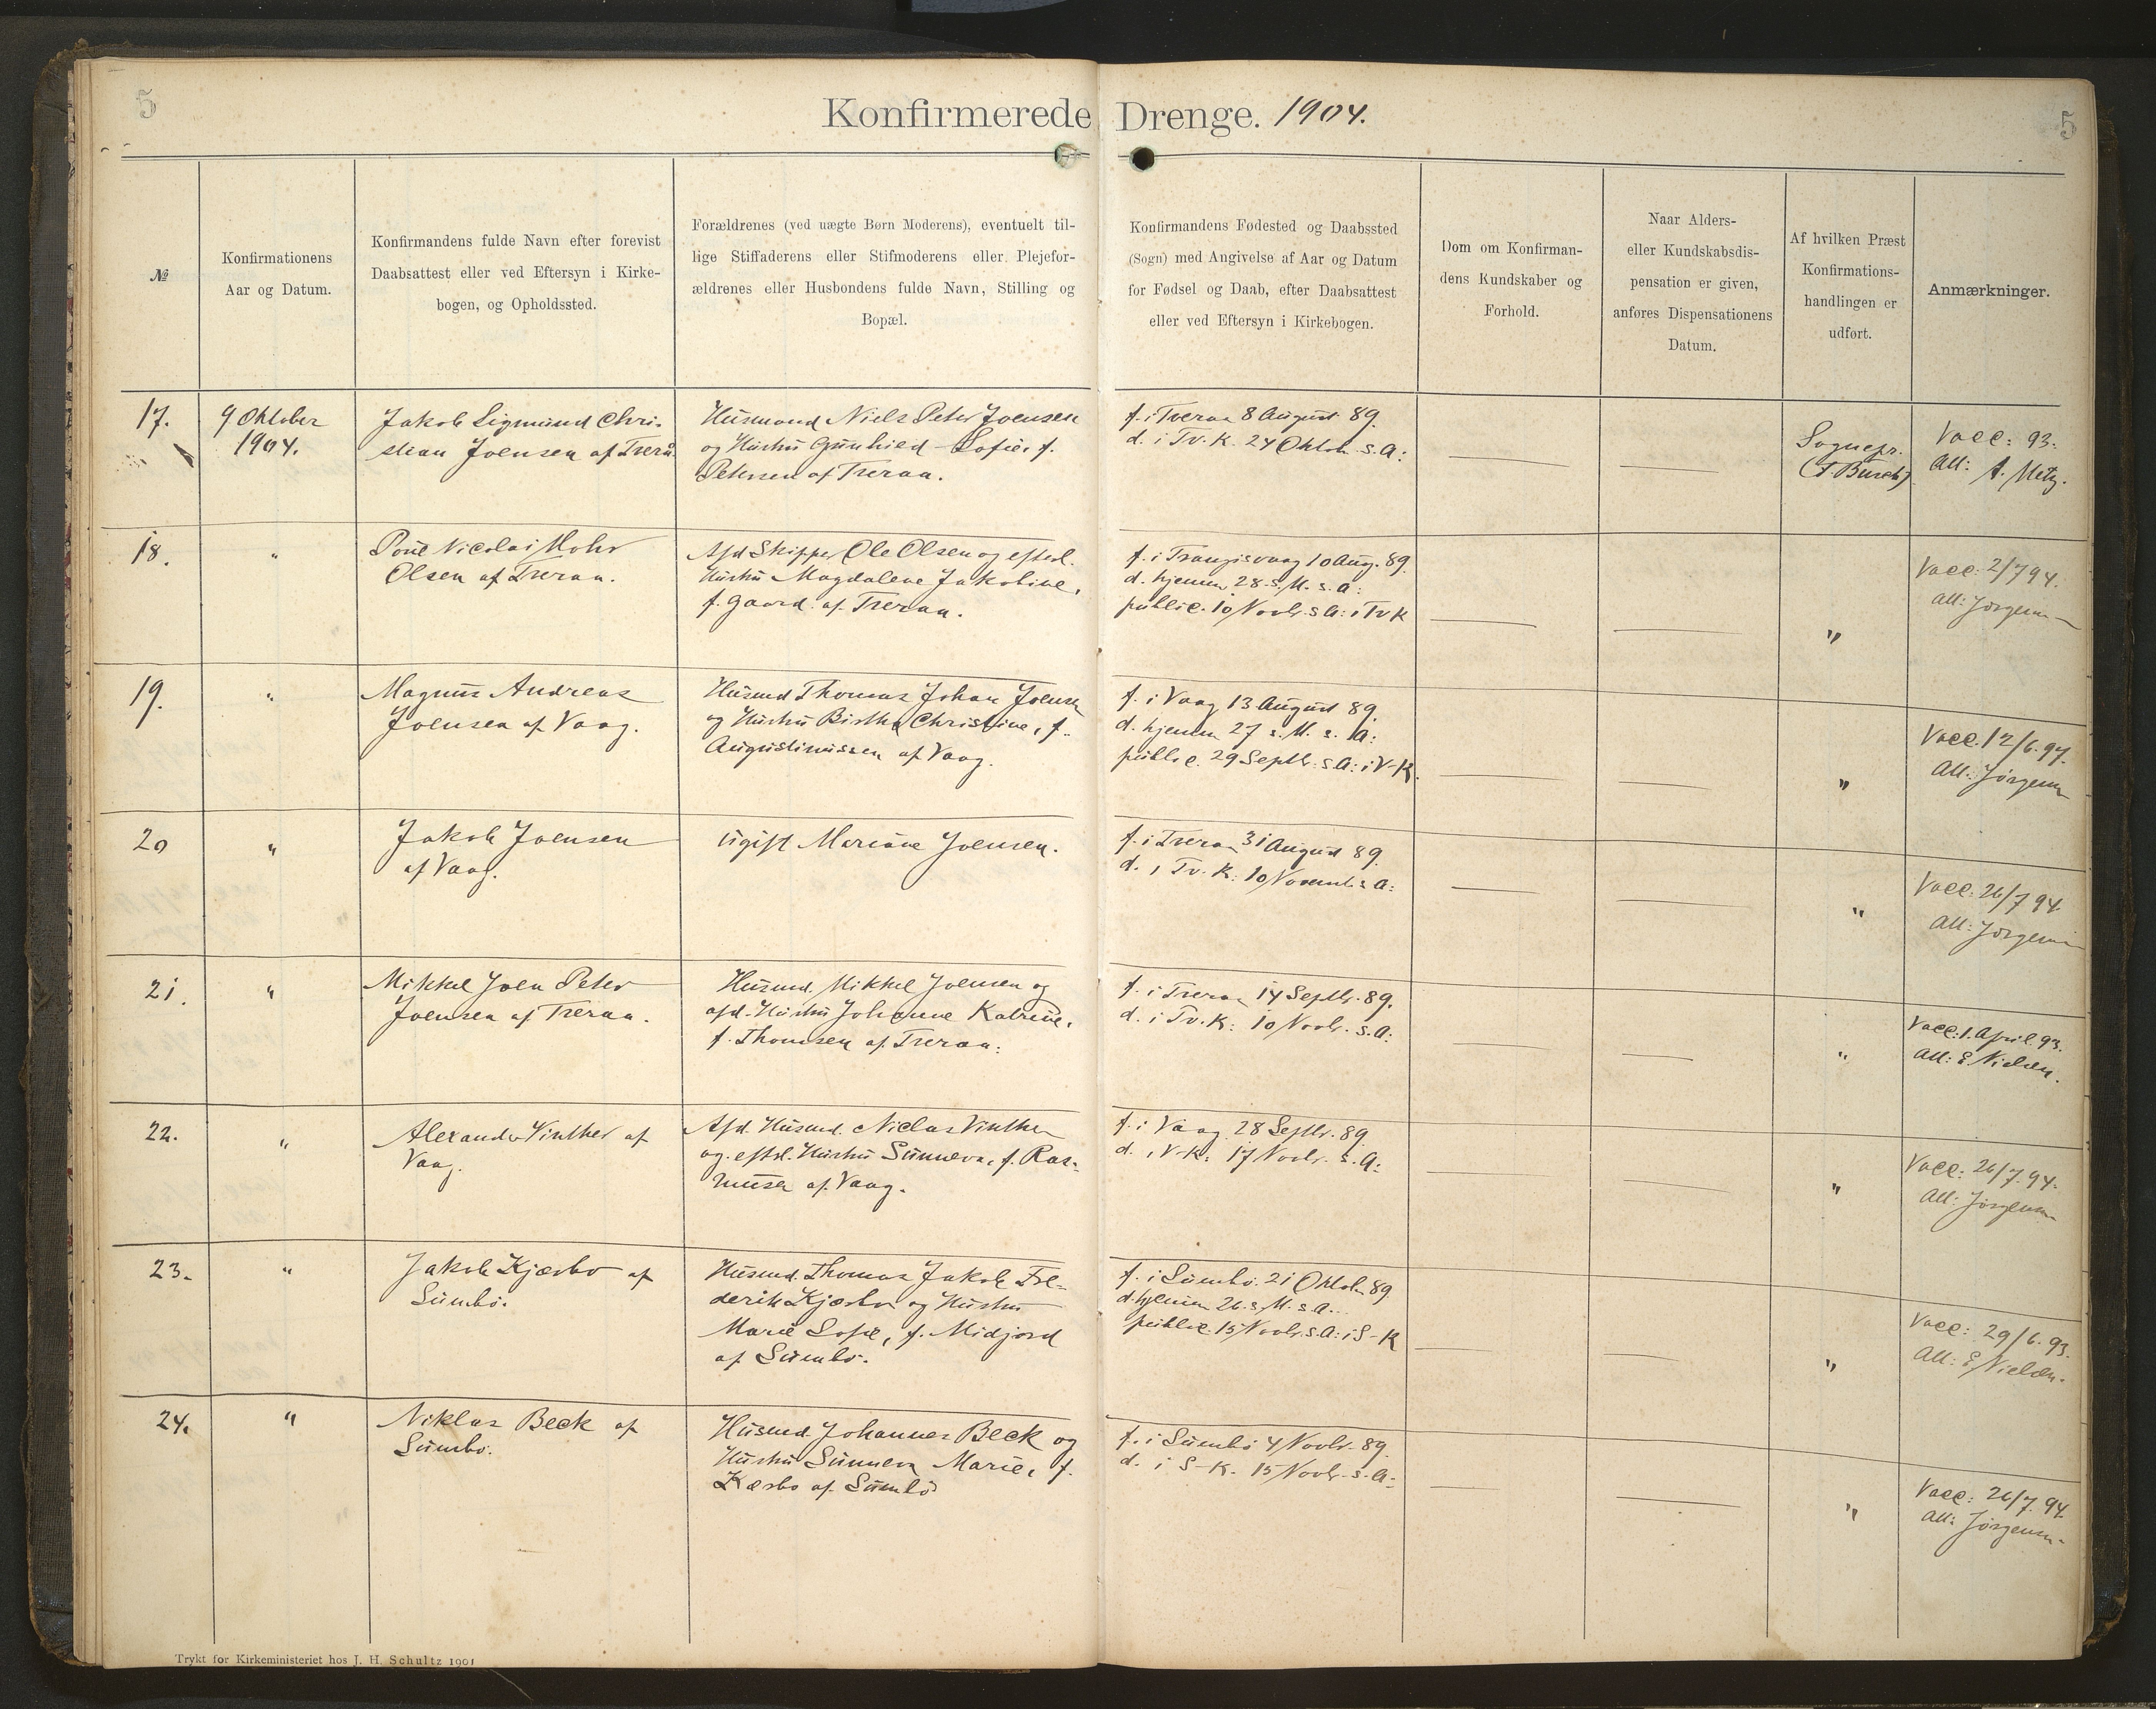 5
5
Konfirmerede Drenge. 1904.
№
Konfirmationens
Aar og Datum.
Konfirmandens fulde Navn efter forevist
Daabsattest eller ved Eftersyn i Kirke-
bogen, og Opholdssted.
Forældrenes (ved uægte Børn Moderens), eventuelt til-
lige Stiffaderens eller Stifmoderens eller Plejefor-
ældrenes eller Husbondens fulde Navn, Stilling og
Bopæl.
Konfirmandens Fødested og Daabssted
(Sogn) med Angivelse af Aar og Datum
for Fødsel og Daab, efter Daabsattest
eller ved Eftersyn i Kirkebogen.
Dom om Konfirman-
dens Kundskaber og
Forhold.
Naar Alders-
eller Kundskabsdis-
pensation er given,
anføres Dispensationens
Datum.
Af hvilken Præst
Konfirmations-
handlingen er
udført.
Anmærkninger.
17.
9 Oktober
1904.
Jakob Sigmund Chri-
stian Joensen af Tverå
Husmand Niels Peter Joensen
og Hustru Gunhild Sofie, f.
Petersen af Tveraa.
f. i Tveraa 8 August 89.
d. i Tv. K. 24 Oktob. s. A:
Sognepr.
(F. Busch)
Vacc: 93.
Att: A. Metz.
18.
"
Poul Nicolai Mohr
Olsen af Tveraa.
Afd Skipper Ole Olsen og efterl.
Hustru Magdalene Jakobine,
f. Gaard af Tveraa.
f. i Trangisvaag 10 Aug. 89.
d. hjemme 28 s. M. s. A:
public. 10 Novbr. s A: i Tv K
"
Vacc: 2/7 94.
Att: Jörgensen
19.
"
Magnus Andreas
Joensen af Vaag.
Husmd Thomas Johan Joensen
og Hustru Birtha Christine, f.
Augustinussen af Vaag.
f. i Vaag 13 August 89.
d. hjemme 27 s. M. s. A:
public. 29 Septbr. s A: i V-K.
"
Vacc. 12/6. 94.
Att: Jörgensen
20
"
Jakob Joensen
af Vaag.
Ugift Mariane Joensen.
f. i Tveraa 31 August 89.
d. i Tv. K: 10 Novemb. s A:
"
Vacc: 26/7 94.
Att: Jörgensen
21.
"
Mikkel Joen Peter
Joensen af Tveraa.
Husmd. Mikkel Joensen og
afd. Hustru Johanne Katrine,
f. Thomsen af Tveraa:
f. i Tveraa 14 Septbr. 89.
d. i Tv. K: 10 Novbr. s. A:
"
Vacc: 1. April 93.
Att: E. Nielsen.
22.
"
Alexander Vinther af
Vaag.
Afd. Husmd. Niclas Vinther
og efterl. Hustru Sunneva, f. Ras-
mussen af Vaag.
f. i Vaag 28 Septbr. 89.
d. i V-K: 17 Novbr. s. A:
"
Vacc: 26/7. 94.
Att: Jörgensen
23.
"
Jakob Kjærbo af
Sumbö.
Husmd. Thomas Jakob Fre-
derik Kjærbo og Hustru
Marie Sofie, f. Midjord
af Sumbö.
f. i Sumbö 21 Oktob. 89
d. hjemme 26. s. M. s. A.
public. 15 Novbr. s. A: i S-K
"
Vacc: 29/6. 93.
Att: E. Nielsen.
24.
"
Niklas Beck af
Sumbö.
Husmd Johannes Beck og
Hustru Sunneva Marie, f.
Kærbo af Sumbö
f. i Sumbö 4 Novbr. 89.
d. i S-K. 15 Novbr. s. A:
"
Vacc: 26/7. 94.
Att: Jörgensen.
Trykt for Kirkeministeriet hos J. H. Schultz 1901